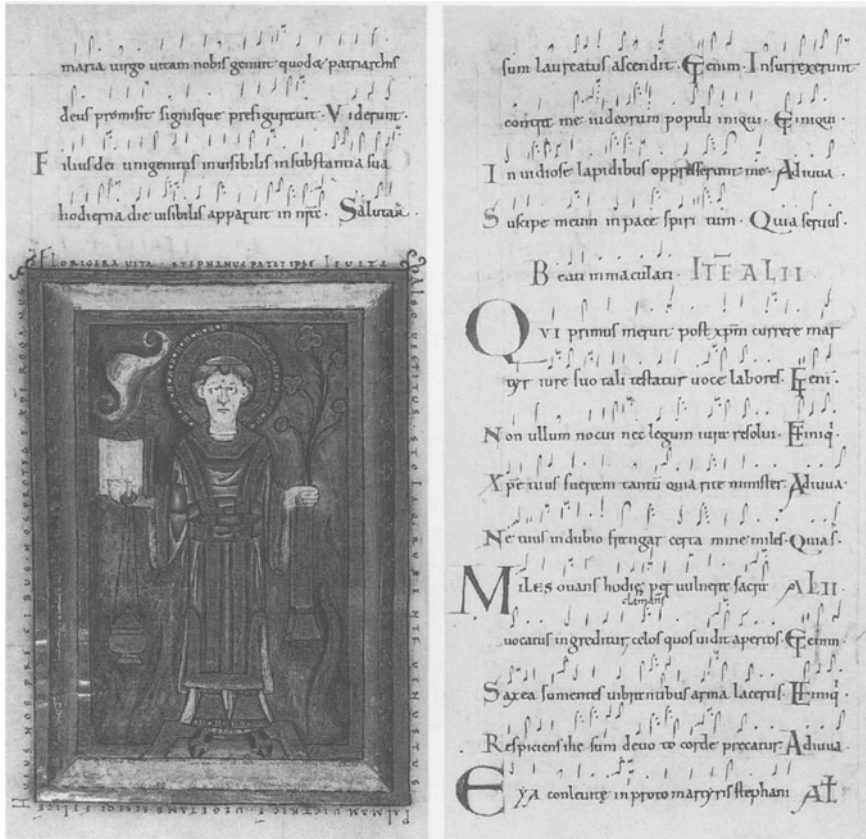 maria uirgo uitam nobis genuit quod & patriarchis
deus promisit signisque prefigurauit. Viderunt.
Filius dei unigenitus inuisibilis in substantia sua
hodierna die uisibilis apparuit in Salutar̄
FLORIGERA UITA STEPHANUS PATET IPSE LEUITA
ALBO UESTITUS STOLA RUBENTE UENUSTUS
PALMAM UICTRICIS UEGETANS FELICIS
HUIUS NOS PRECIBUS PROTEGE XPE ROGAMUS
sum laureatus ascendit. Etenim. Insurrexerunt
contra me iudeorum populi iniqui. Et iniqui.
Inuidiose lapidibus oppresserunt me. Adiuua.
Suscipe meum in pace spiritum. Quia seruus.
Beati inmaculati. ITĒ ALII
QVI primus meruit post xpm̄ currere mar
tyr iure suo tali testatur uoce labores. Eteni.
Non ullum nocui nec legum iura resolui. Et iniq.
Xpē tuus fueram tantū quia rite minister. Adiuua.
Ne tuus in dubio frangar certamine miles. Quia s.
MILES ouans hodie per uulnera sacra ALII
clamans
uocatus ingreditur celos quos uidit apertos. Etenim
Saxea sumentes uibrantibus arma lacertis. Et iniq.
Respiciens ihe sum deuoto corde precatur. Adiuua
EYA conleuitę in protomartyris stephani AT